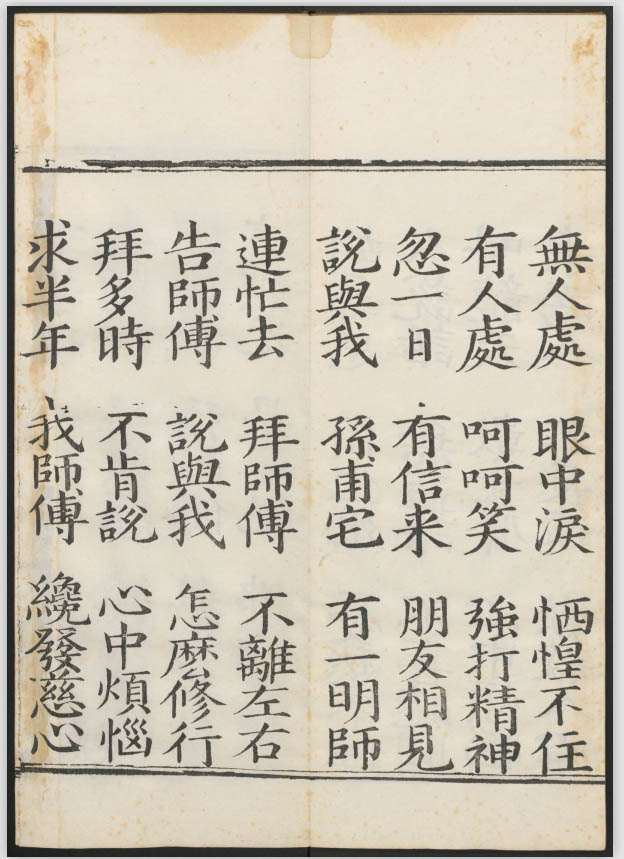 無人處 眼中淚 恓惶不住
有人處 呵呵笑 強打精神
忽一日 有信来 朋友相見
說與我 孫甫宅 有一明師
連忙去 拜師傅 不離左右
告師傅 說與我 怎麽修行
拜多時 不肯說 心中煩惱
求半年 我師傅 纔發慈心